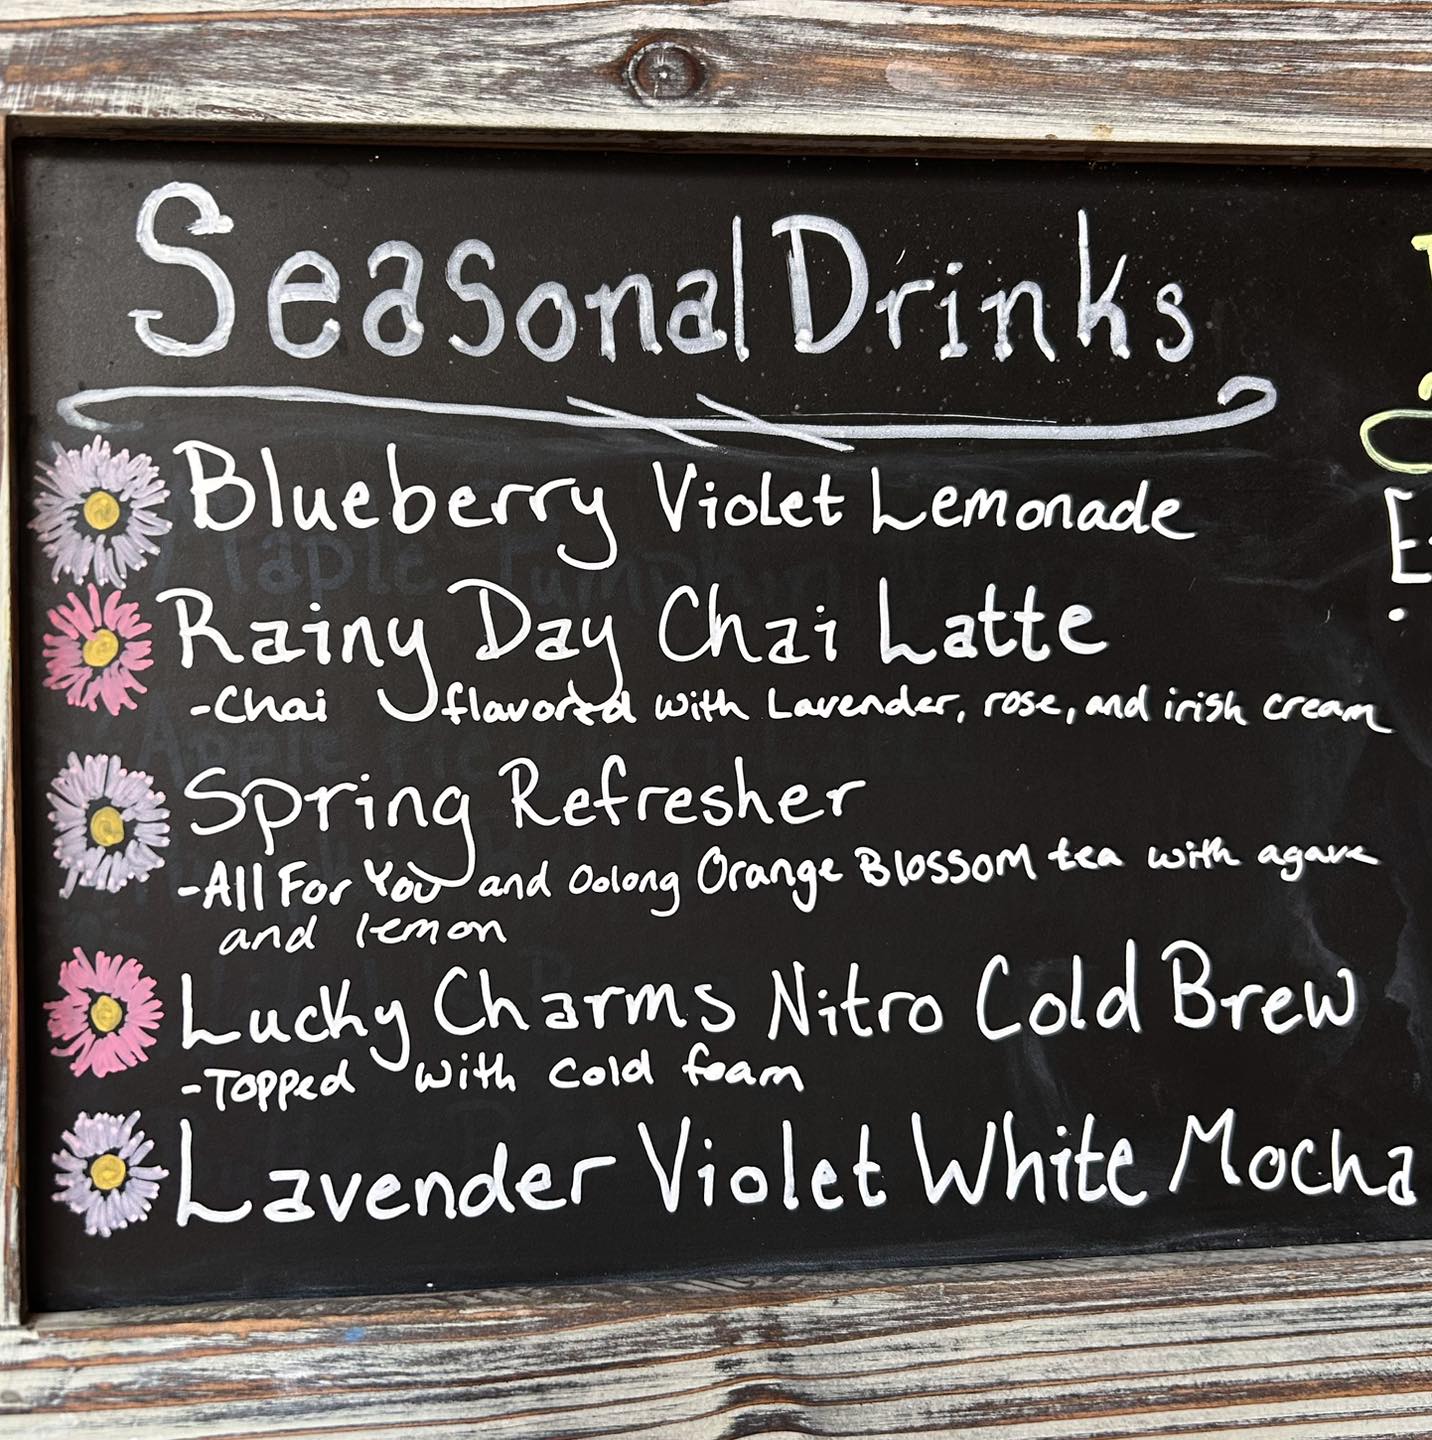 Seasonal Drinks
Blueberry Violet Lemonade
Rainy Day Chai Latte
-Chai flavored with Lavender, rose, and irish cream
Spring Refresher
-All For You and Oolong Orange Blossom tea with agave
and lemon
Lucky Charms Nitro Cold Brew
-Topped with cold foam
Lavender Violet White Mocha